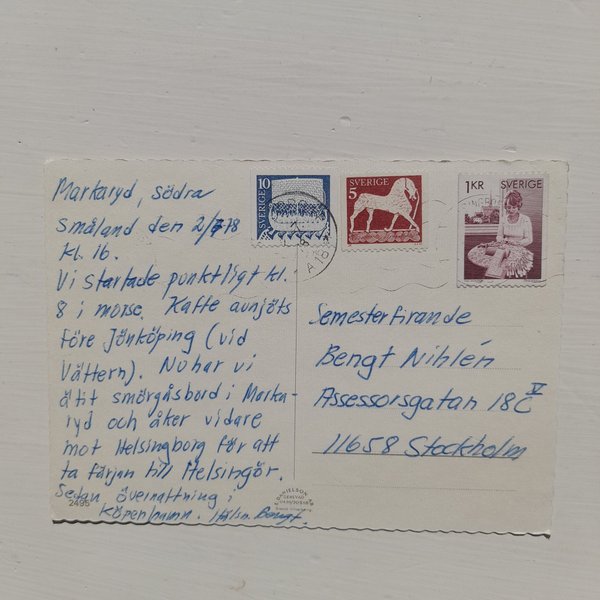 Markaryd, södra
Småland den 2/7 78
kl. 16.
Vi startade punktligt kl.
8 i morse. Kaffe avnjöts
före Jönköping (vid
Vättern). Nu har vi
ätit smörgåsbord i Marka-
ryd och åker vidare
mot Helsingborg för att
ta färjan till Helsingör.
Sedan övernattning i
Köpenhamn. Hälsn. Bengt.
2495
SVERIGE 10
SVERIGE
5
1 KR SVERIGE
Semesterfirande
Bengt Nihlén
Assessorsgatan 18C V
11658 Stockholm